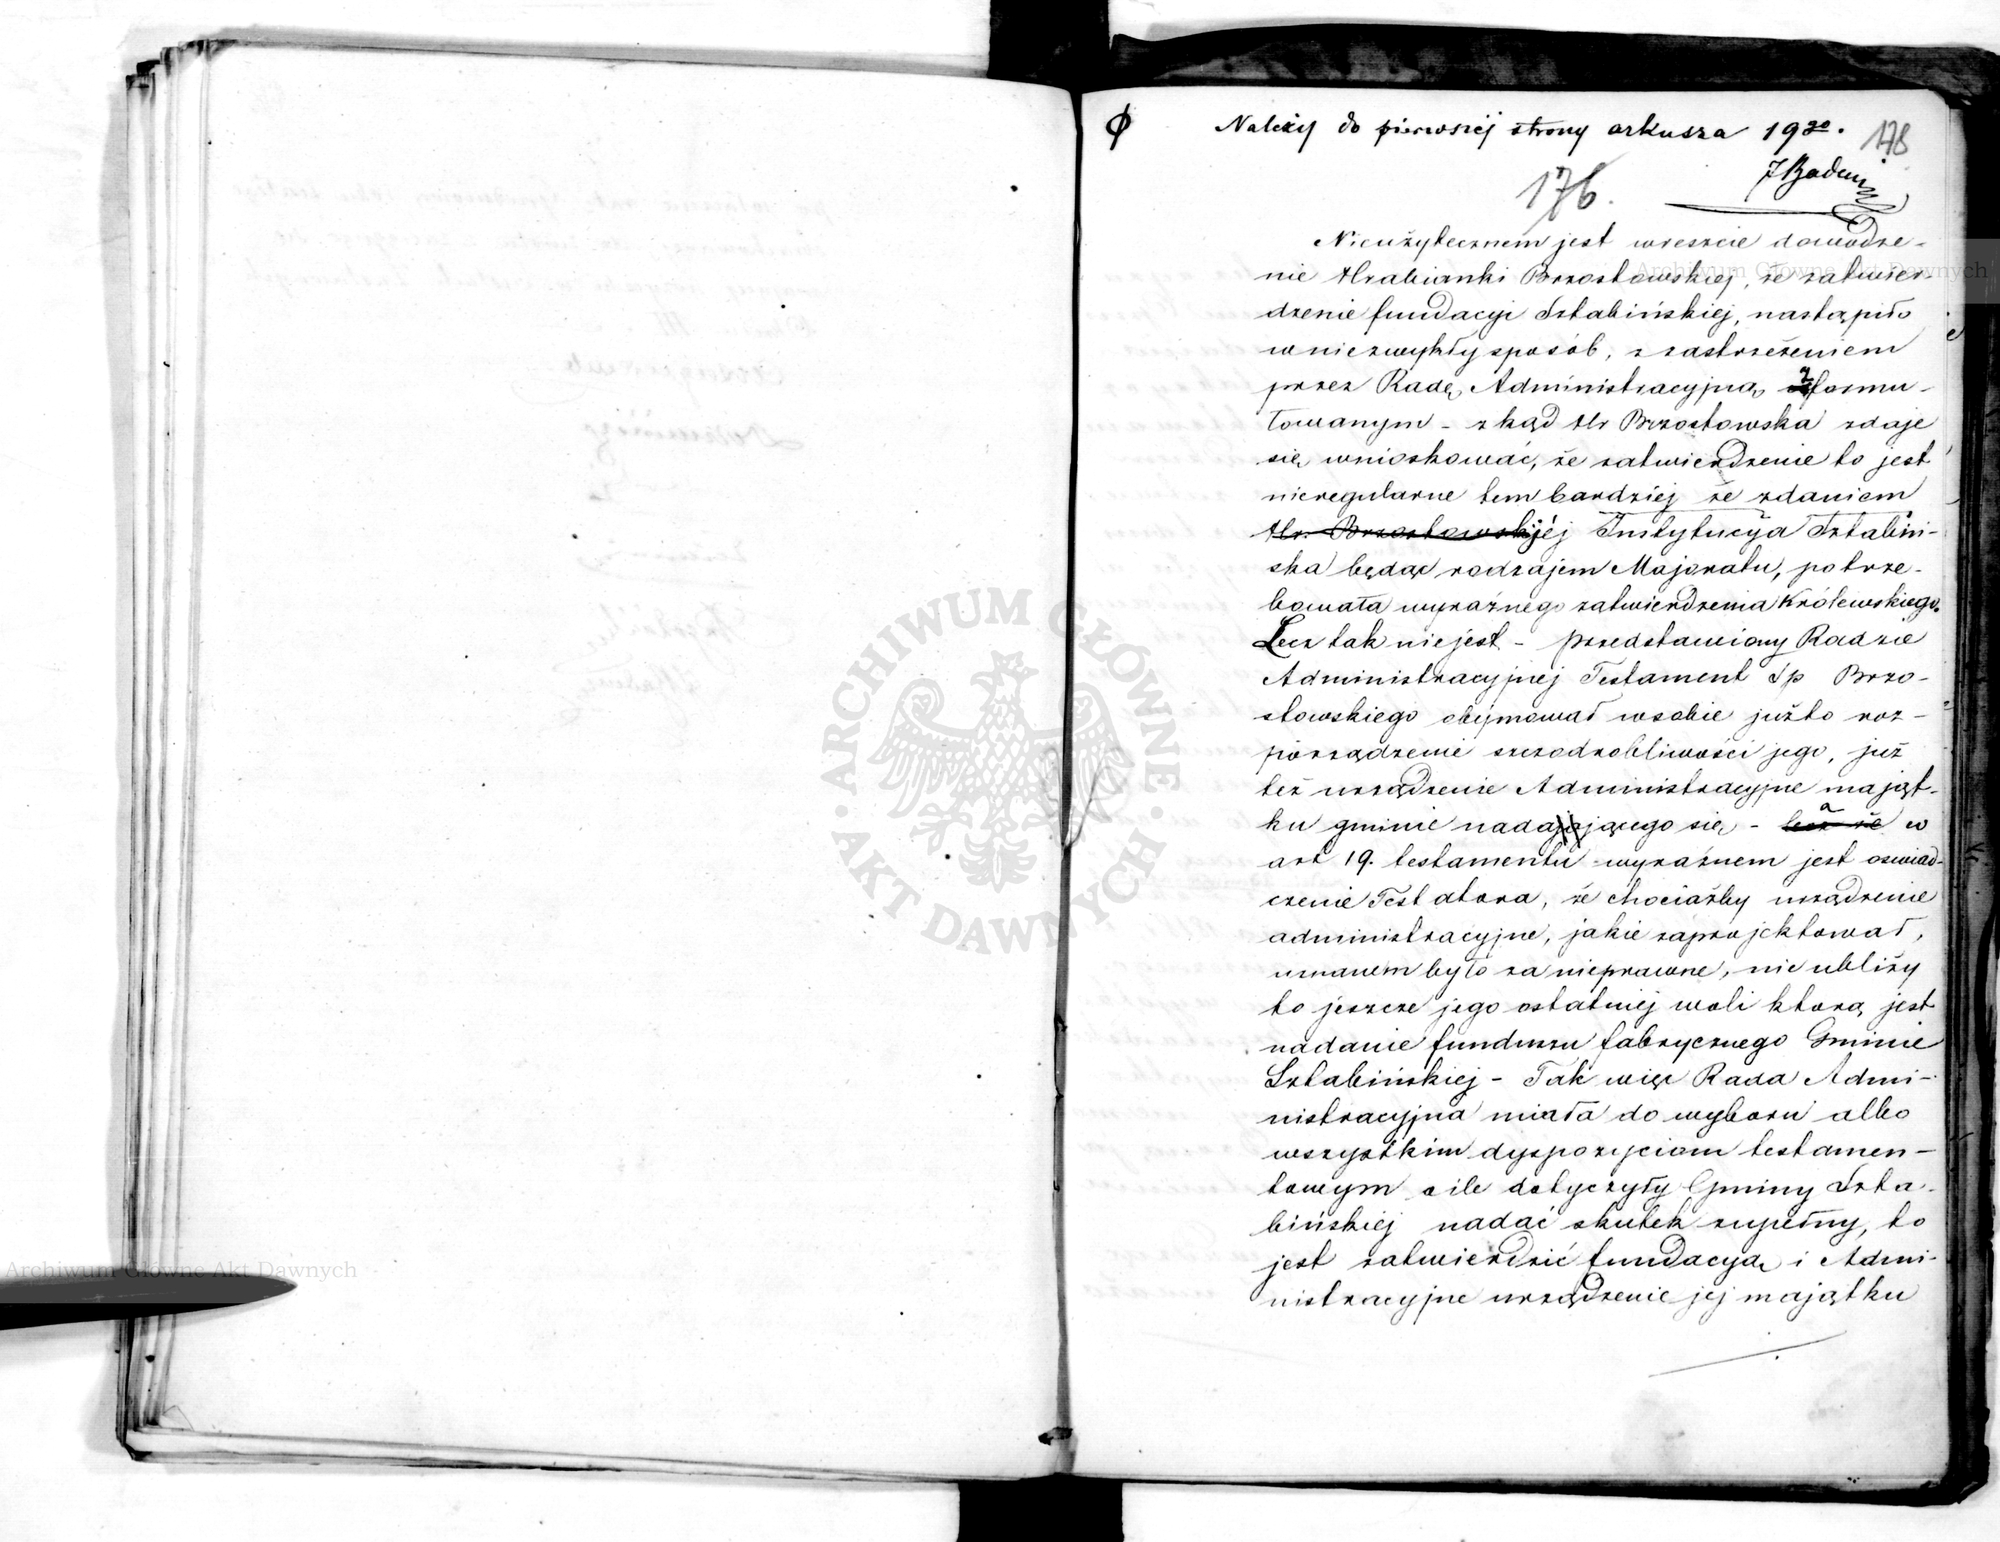 ϕ Należy do pierwszéj strony arkusza 19go.
178
JBadeni
176.
Nieużytecznem jest wreszcie dowodze-
nie Hrabianki Brzostowskiej, że zatwier-
dzenie fundacyi Sztabińskiej, nastąpiło
w niezwykły sposób, z zastrzeżeniem
przez Radę Administracyjną zformu-
łowanym - zkąd Hr Brzostowska zdaje
się wnioskować, że zatwierdzenie to jest
nieregularne tembardziéj że zdaniem
Hr. Brzostowskij jéj Instytucya Sztabiń-
ska będąc rodzajem Majoratu, potrze-
bowała wyraźnego zatwierdzenia Królewskiego.
Lecz tak nie jest - przedstawiony Radzie
Administracyjnej Testament Sp Brzo-
stowskiego obejmował w sobie jużto roz-
porządzenie szczodrobliwości jego, już
też urządzenie Administracyjne mająt-
ku gminie nadającego się - lecz że a w
art 19. testamentu wyraźnem jest oswiad-
czenie Testatora, że chociażby urządzenie
administracyjne, jakie zaprojektował,
uznanem było za nieprawne, nie ubliży
to jeszcze jego ostatniéj woli ktorą jest
nadanie funduszu fabrycznego Gminie
Sztabińskiej - Tak więc Rada Admi-
nistracyjna miała do wyboru albo
wszystkim dyspozyciom testamen-
towym o ile dotyczyły Gminy Szta-
bińskiéj nadać skutek zupełny, to
jest zatwierdzić fundacyą i Admi-
nistracyjne urządzenie jej majątku
ARCHIWUM GŁÓWNE AKT DAWNYCH
Archiwum Główne Akt Dawnych
Archiwum Główne Akt Dawnych